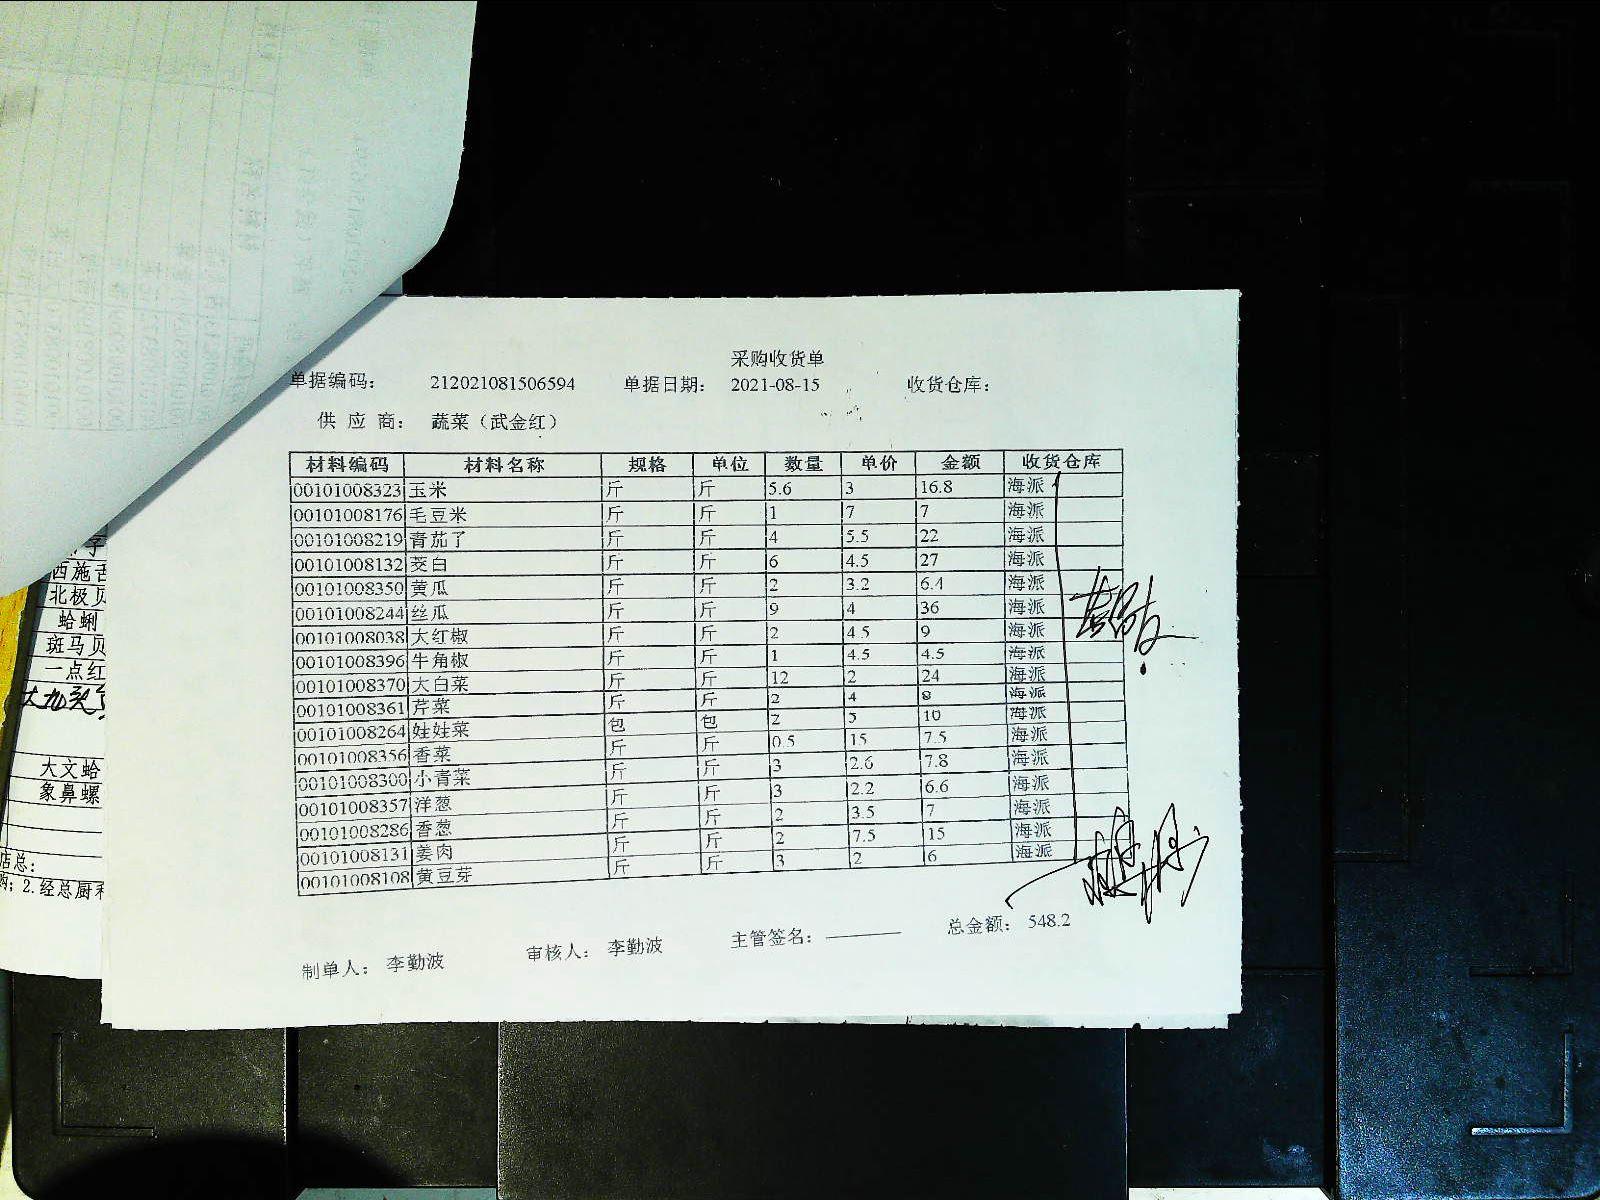 采购收货单
单据编码： 212021081506594 单据日期： 2021-08-15 收货仓库：
供 应 商： 蔬菜（武金红）
材料编码 材料名称 规格 单位 数量 单价 金额 收货仓库
00101008323 玉米 斤 斤 5.6 3 16.8 海派
00101008176 毛豆米 斤 斤 1 7 7 海派
00101008219 青茄了 斤 斤 4 5.5 22 海派
00101008132 茭白 斤 斤 6 4.5 27 海派
00101008350 黄瓜 斤 斤 2 3.2 6.4 海派
00101008244 丝瓜 斤 斤 9 4 36 海派
00101008038 大红椒 斤 斤 2 4.5 9 海派
00101008396 牛角椒 斤 斤 1 4.5 4.5 海派
00101008370 大白菜 斤 斤 12 2 24 海派
00101008361 芹菜 斤 斤 2 4 8 海派
00101008264 娃娃菜 包 包 2 5 10 海派
00101008356 香菜 斤 斤 0.5 15 7.5 海派
00101008300 小青菜 斤 斤 3 2.6 7.8 海派
00101008357 洋葱 斤 斤 3 2.2 6.6 海派
00101008286 香葱 斤 斤 2 3.5 7 海派
00101008131 姜肉 斤 斤 2 7.5 15 海派
00101008108 黄豆芽 斤 斤 3 2 6 海派
制单人： 李勤波 审核人： 李勤波 主管签名： 总金额： 548.2
西施舌
北极贝
蛤蜊
斑马贝
一点红
大文蛤
象鼻螺
店总：
2.经总厨和